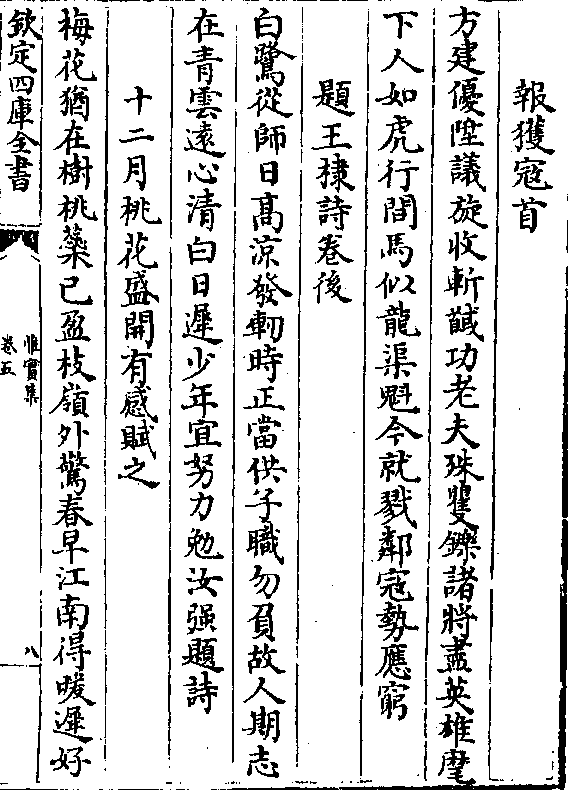 報獲寇首
方建優陞議旋收斬馘功老夫殊矍鑠諸將盡英雄麾
下人如虎行間馬似龍渠魁今就戮鄰寇勢應窮
題王棣詩卷後
白鷺從師日髙涼發軔時正當供子職勿負故人期志
在青雲遠心清白日遲少年宜努力勉汝强題詩
十二月桃花盛開有感賦之
梅花猶在樹桃蘂已盈枝嶺外驚春早江南得暖遲好
欽定四庫全書
惟實集
卷五
八